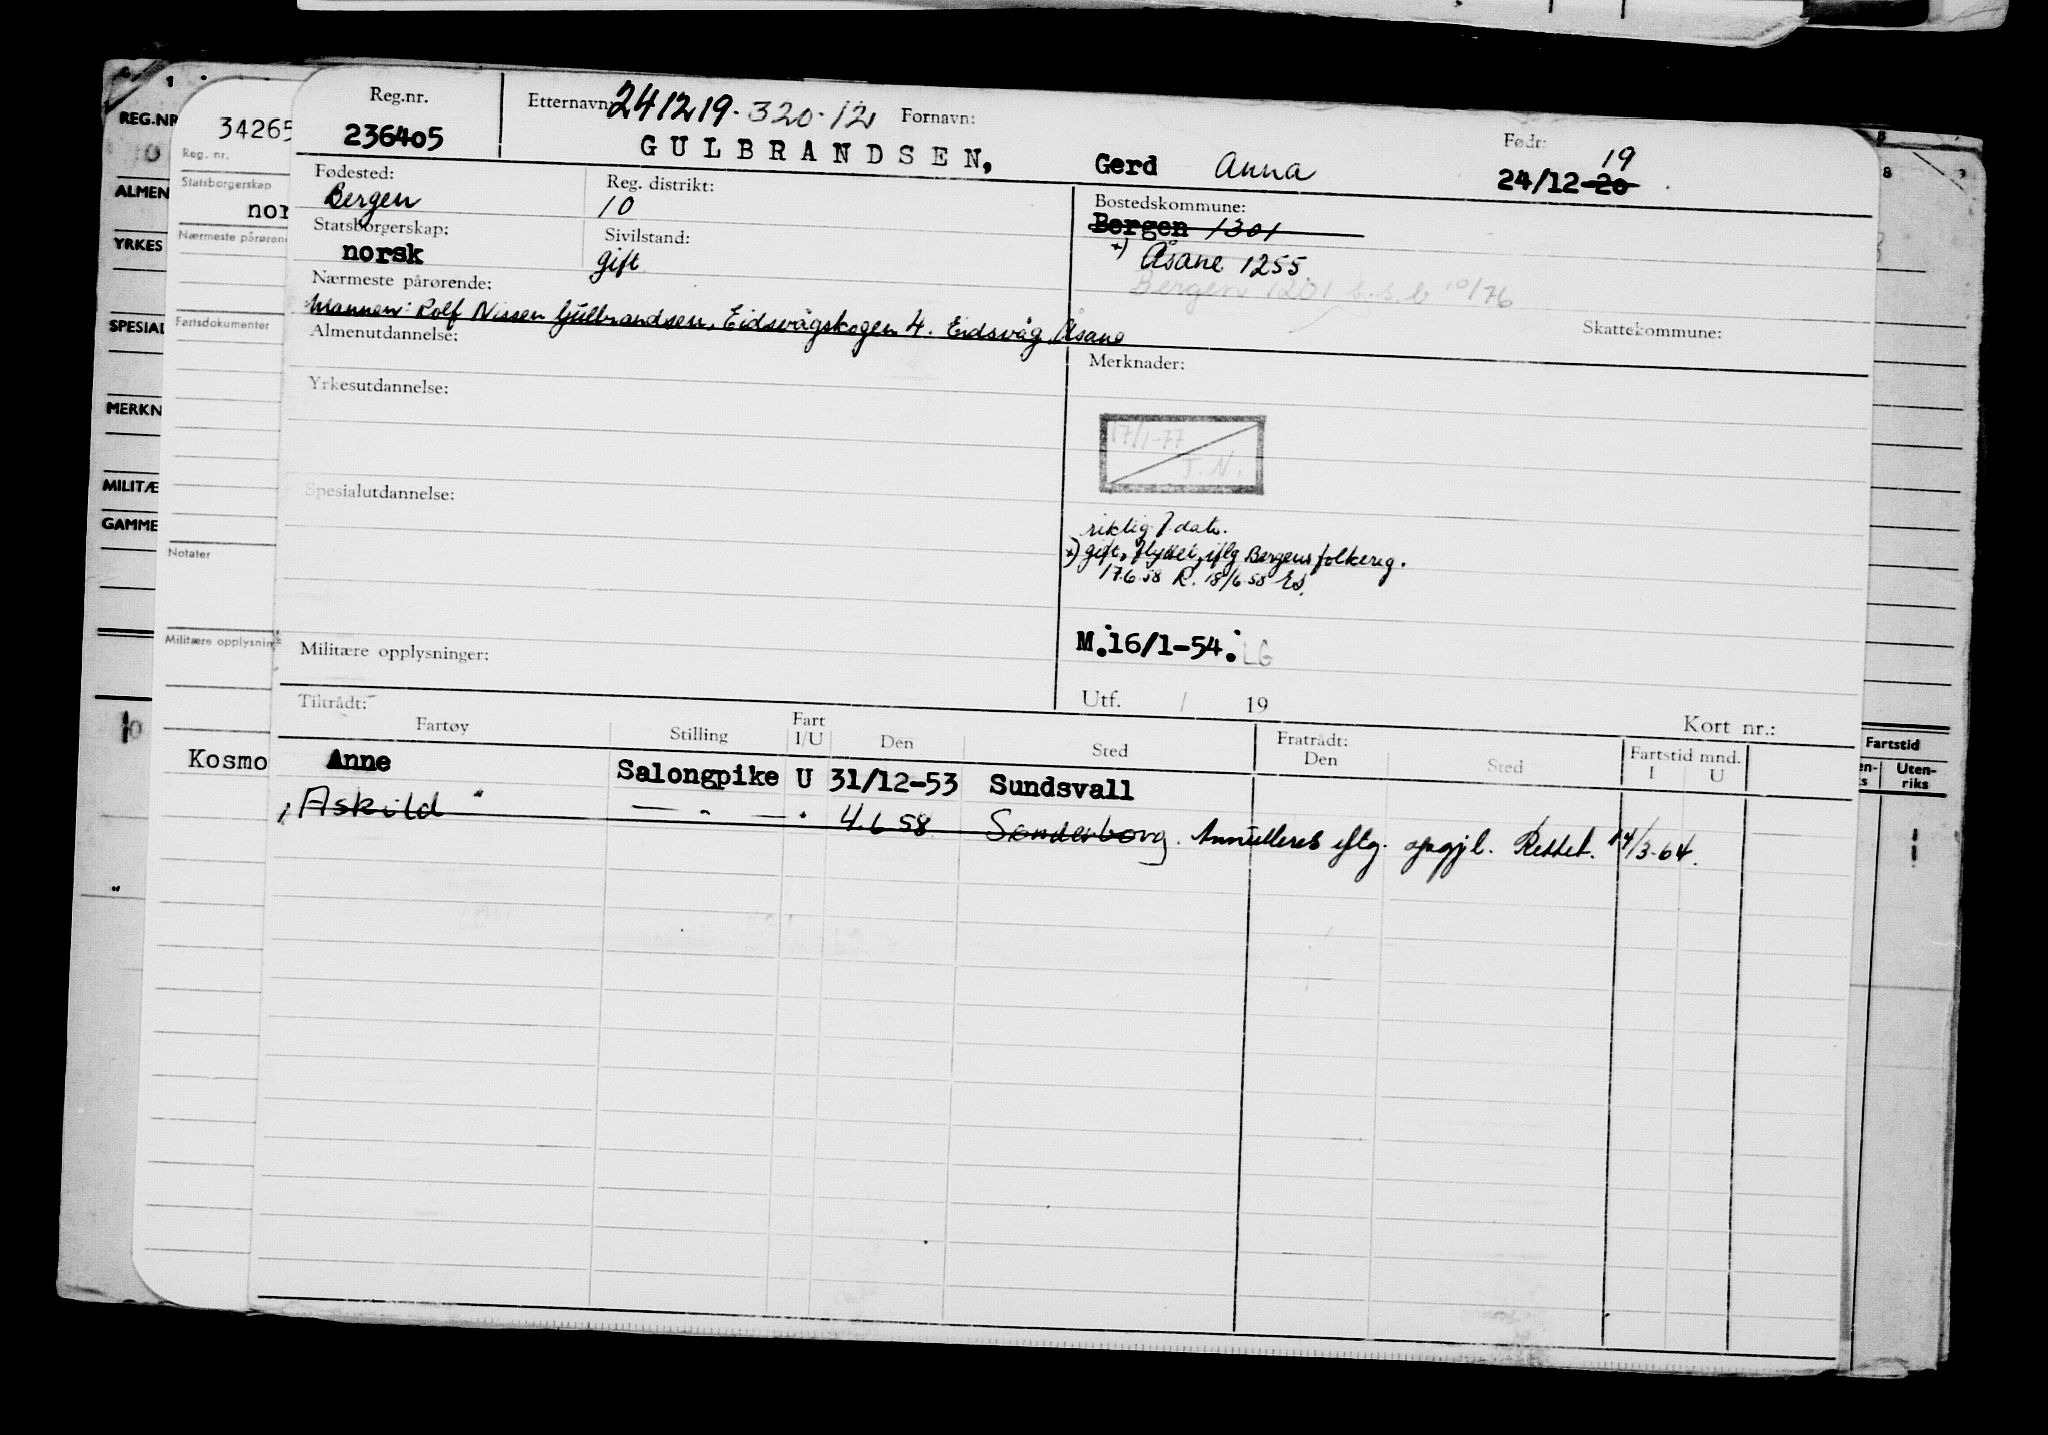 REG.NR
ALMEN
YRKES
SPESIAL
MERKN
MILITÆ
GAMME
34265
Reg. nr.
Statsborgerskap
nor
Nærmeste pårøren
Fartsdokumenter
Notater
Militære opplysnin
Kosmo
Reg.nr.
236405
Etternavn 241219-320-12 Fornavn:
GULBRANDSEN, Gerd Anna
Født: 19
24/12-20
Fødested:
Bergen
Reg. distrikt:
10
Bostedskommune:
Bergen 1301
Statsborgerskap:
norsk
Sivilstand:
gift
x) Åsane 1255
Bergen 1201 s.s.b 10/76
Nærmeste pårørende:
Mannen: Rolf Nissen Gulbrandsen, Eidsvågskogen 4. Eidsvåg Åsane
Skattekommune:
Almenutdannelse:
Merknader:
Yrkesutdannelse:
17/1-77
T.N.
Spesialutdannelse:
riktig f dato.
x) gift, flyttet, iflg Bergens folkereg.
17.6.58 R. 18/6.58 Es.
Militære opplysninger:
M.16/1-54. LG
Utf. / 19
Kort nr.:
Tiltrådt:
Fartøy Stilling Fart I/U Den Sted Fratrådt: Den Sted Fartstid mnd. I U
Anne Salongpike U 31/12-53 Sundsvall
Askild " — " — " 4.6 58 Sønderborg. Annulleres iflg. oppgjl. Rettet. 14/3-64.
Fartstid
en-
s
Uten-
riks